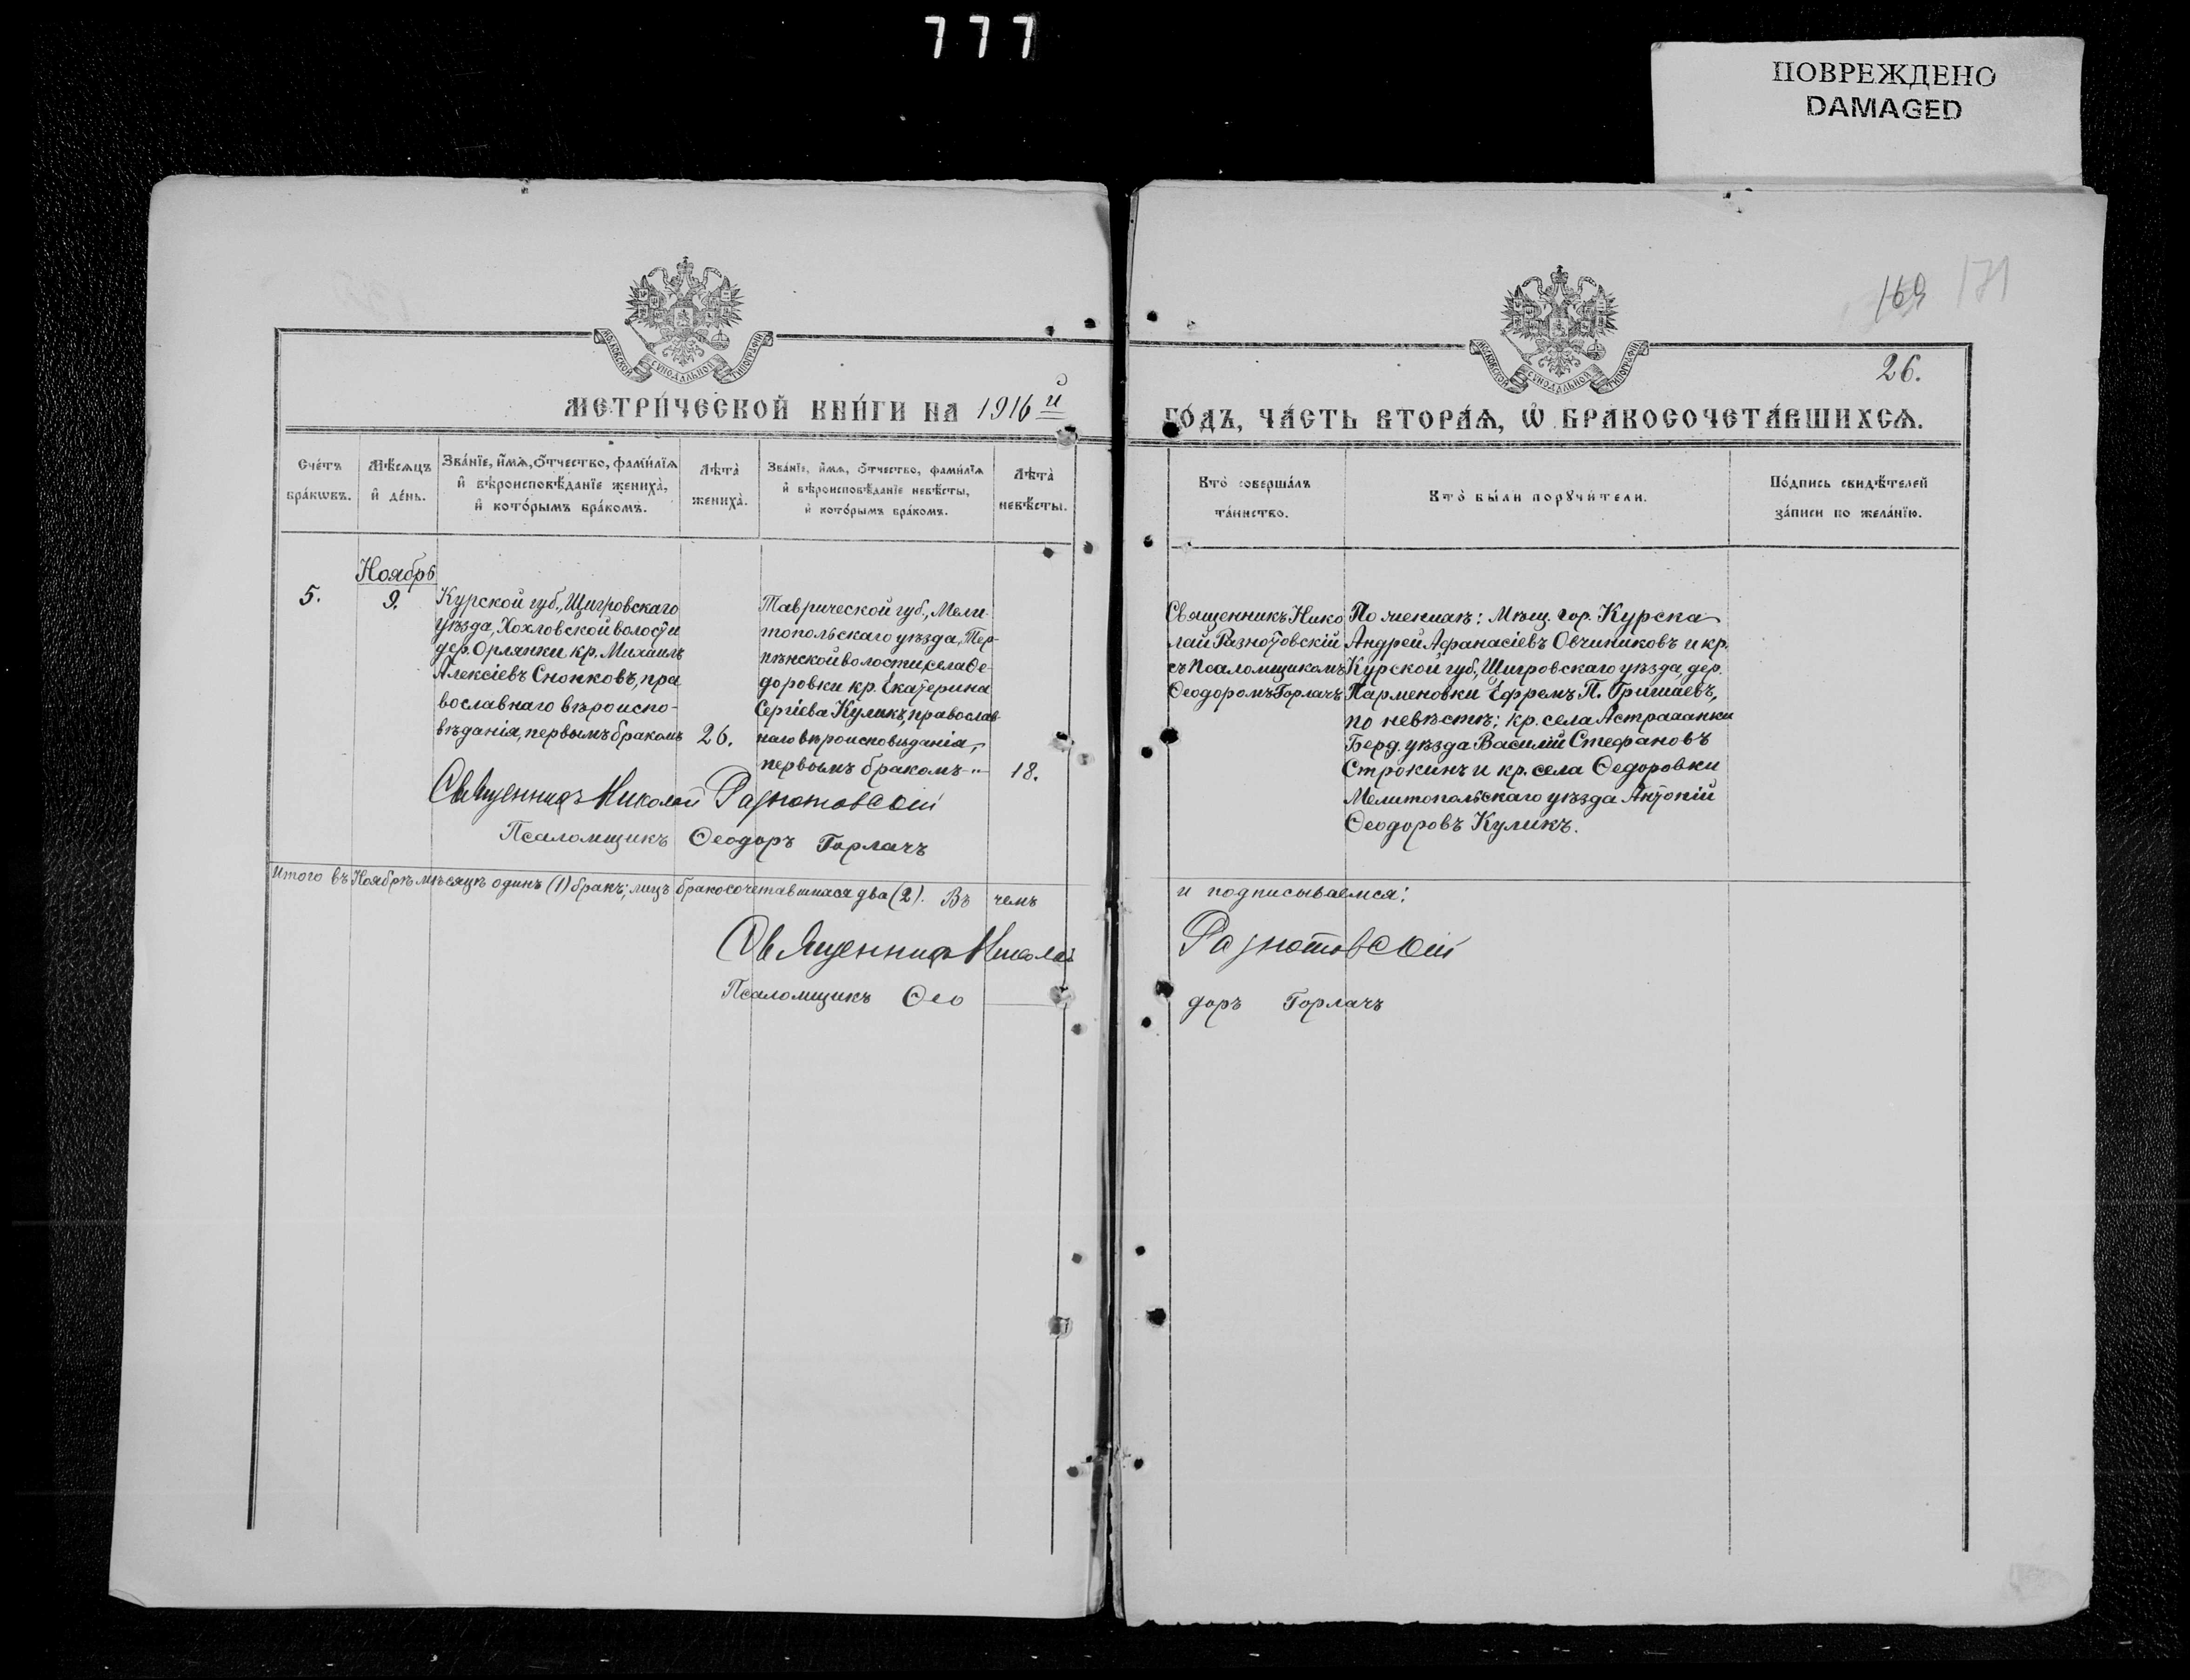 777
ПОВРЕЖДЕНО
DAMAGED
169 171
МОСКОВСКОЙ СѴНОДАЛЬНОЙ ТИПОГРАФІИ
МОСКОВСКОЙ СѴНОДАЛЬНОЙ ТИПОГРАФІИ
26.
МЕТРИ́ЧЕСКОЙ КНИ́ГИ НА 1916й
ГО́ДЪ, ЧА́СТЬ ВТОРА́Ѧ, Ѽ БРАКОСОЧЕТА́ВШИХСѦ.
Сче́тъ
бра́кѡвъ.
Мѣ́сѧцъ
и҆ де́нь.
Зва́нїе, и҆́мѧ, ѻ҆́тчество, фами́лїѧ
и҆ вѣроисповѣ́данїе жениха̀,
и҆ кото́рымъ бра́комъ.
Лѣта̀
жениха̀.
Зва́нїе, и҆́мѧ, ѻ҆́тчество, фами́лїѧ
и҆ вѣроисповѣ́данїе невѣ́сты,
и҆ кото́рымъ бра́комъ.
Лѣта̀
невѣ́сты.
Кто̀ соверша́лъ
та́инство.
Кто̀ бы́ли порꙋчи́тели.
По́дпись свидѣ́телей
за́писи по жела́нїю.
Ноябрь
5.
9.
Курской губ., Щигровскаго
уѣзда, Хохловской волости
дер. Орлянки кр. Михаилъ
Алексіевъ Снопковъ, пра
вославнаго вѣроиспо-
вѣданія, первымъ бракомъ
26.
Таврической губ., Мели-
топольскаго уѣзда, Тер-
пѣнской волости, села Ѳе-
доровки кр. Екатерина
Сергіева Куликъ, православ-
наго вѣроисповѣданія,
первымъ бракомъ
18.
Священникъ Нико
лай Разнотовскій
съ Псаломщикомъ
Ѳеодоромъ Горлачъ
По женихѣ: Мѣщ. гор. Курска
Андрей Аѳанасіевъ Овчиниковъ и кр.
Курской губ., Щигровскаго уѣзда, дер.
Парменовки Ефремъ П. Гришаевъ,
по невѣстѣ: кр. села Астраханки
Берд. уѣзда Василій Стефановъ
Строкинъ и кр. села Ѳедоровки
Мелитопольскаго уѣзда Антоній
Ѳеодоровъ Куликъ.
Священникъ Николай Разнотовскій
Псаломщикъ Ѳеодоръ Горлачъ
Итого въ Ноябрѣ мѣсяцѣ одинъ (1) бракъ; лицъ бракосочетавшихся два (2). Въ чемъ
и подписываемся:
Священникъ Николай
Разнотовскій
Псаломщикъ Ѳео
доръ Горлачъ